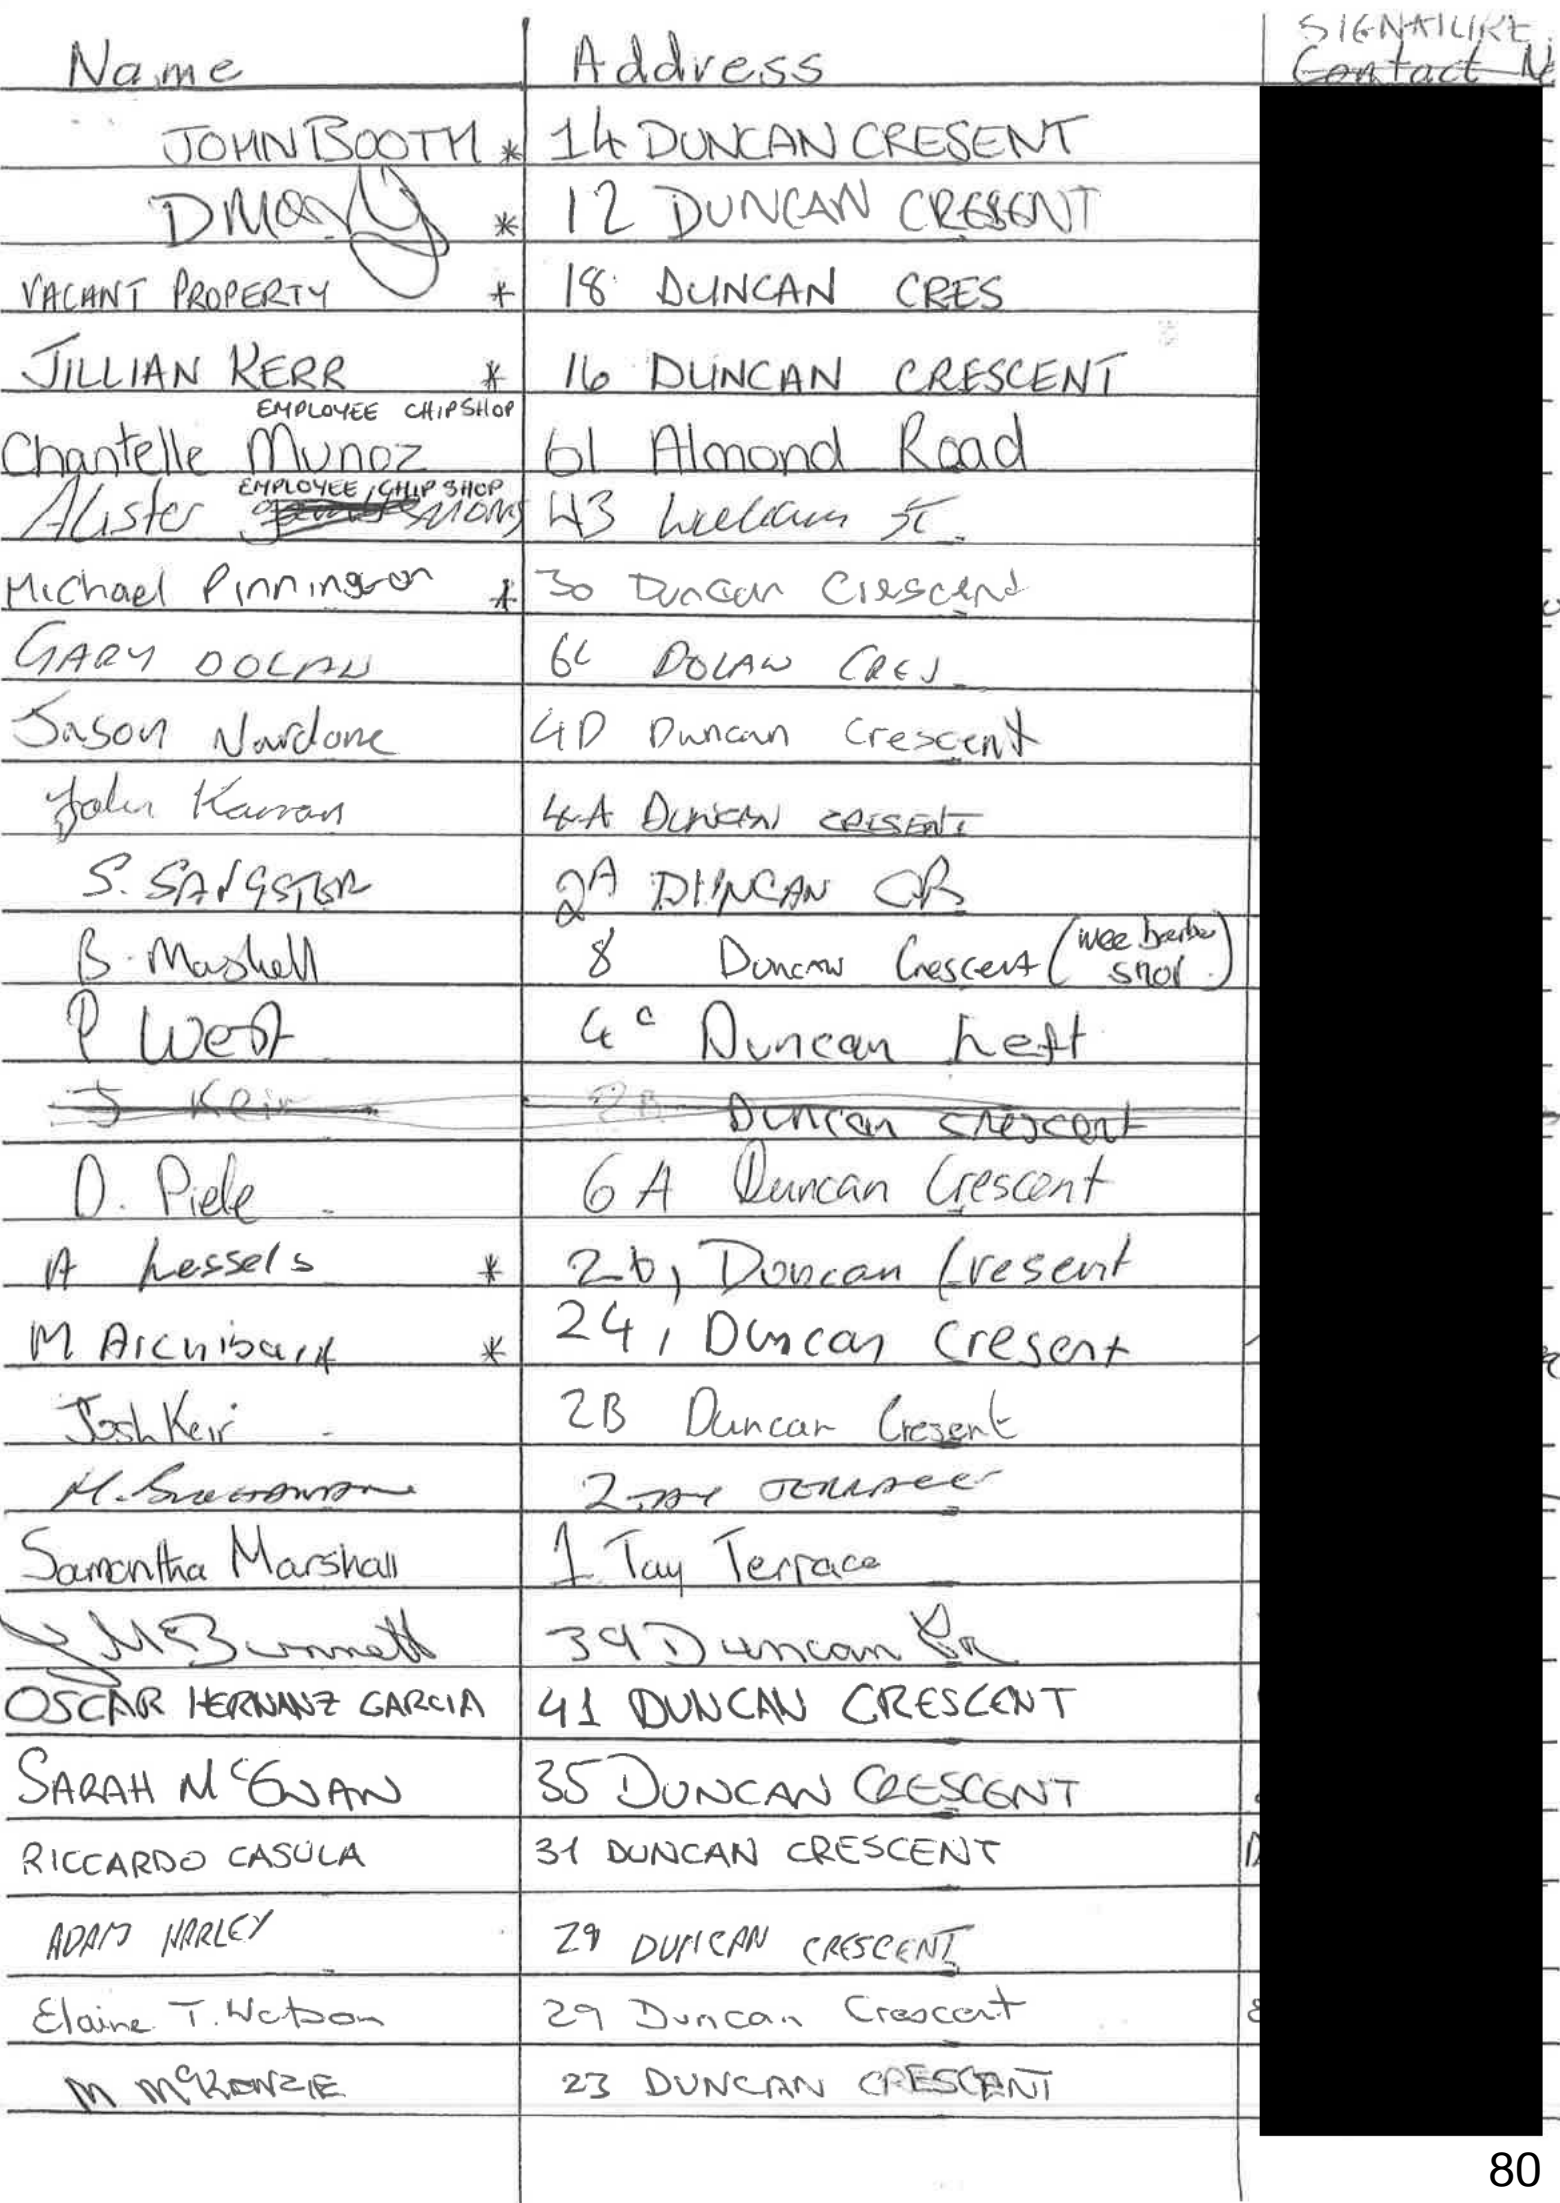 SIGNATURE
Name Address Contact No
JOHN BOOTH * 14 DUNCAN CRESENT
D * 12 DUNCAN CRESENT
VACANT PROPERTY * 18 DUNCAN CRES
JILLIAN KERR * 16 DUNCAN CRESCENT
EMPLOYEE CHIPSHOP
Chantelle Munoz 61 Almond Road
EMPLOYEE CHIP SHOP
Alister 43 William St.
Michael Pinnington * 30 Duncan Crescent
GARY DOLAN DOLAN CRES
Jason Nardone 4D Duncan Crescent
John 4A DUNCAN CRESENT
S. SANGSTER 2A DUNCAN CR
B. Maskell 8 Duncan Crescent (wee barber shop)
P West 4c Duncan Left
J Keir 2B Duncan crescent
D. Piele 6A Duncan Crescent
A Lessels * 26, Duncan Cresent
M Archibald * 24, Duncan Cresent
Josh Keir 2B Duncan Cresent
M. 2 TAY TERRACE
Samantha Marshall 1 Tay Terrace
39 Duncan Cr
OSCAR HERNANZ GARCIA 41 DUNCAN CRESCENT
SARAH McEWAN 35 DUNCAN CRESCENT
RICCARDO CASULA 31 DUNCAN CRESCENT
ADAM HARLEY 29 DUNCAN CRESCENT
Elaine T. Watson 29 Duncan Crescent
M McKENZIE 23 DUNCAN CRESCENT
80